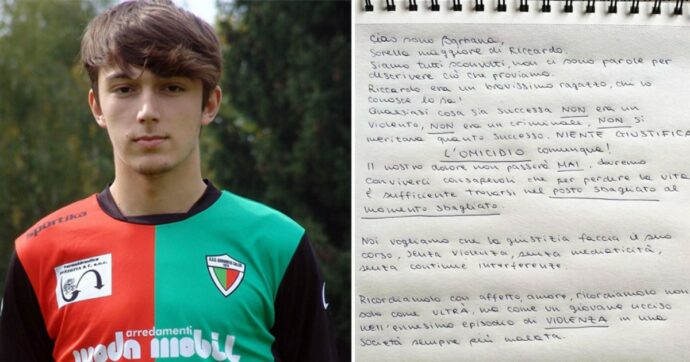 sportika
termoidraulica
arredamenti
moda mobil
Ciao sono Barbara,
Sorella maggiore di Riccardo.
Siamo tutti sconvolti, non ci sono parole per
descrivere ciò che proviamo.
Riccardo era un bravissimo ragazzo, chi lo
conosce lo sa!
Qualsiasi cosa sia successa NON era un
violento, NON era un criminale, NON si
meritava quanto successo. NIENTE GIUSTIFICA
L'OMICIDIO comunque!
Il nostro dolore non passerà MAI, daremo
conviverci consapevoli che per perdere la vita
è sufficiente trovarsi nel posto sbagliato al
momento sbagliato.
Noi vogliamo che la giustizia faccia il suo
corso, senza violenza, senza mediaticità,
senza continue interferenze.
Ricordiamolo con affetto amore, ricordiamolo non
solo come ULTRÀ, ma come un giovane ucciso
nell'ennesimo episodio di VIOLENZA in una
società sempre più malata.